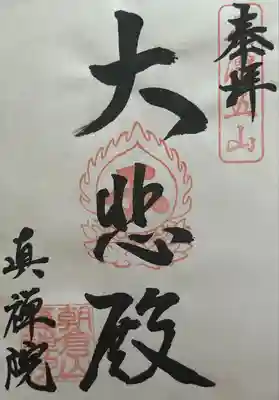 奉拝
大悲殿
真禅院
朝倉山